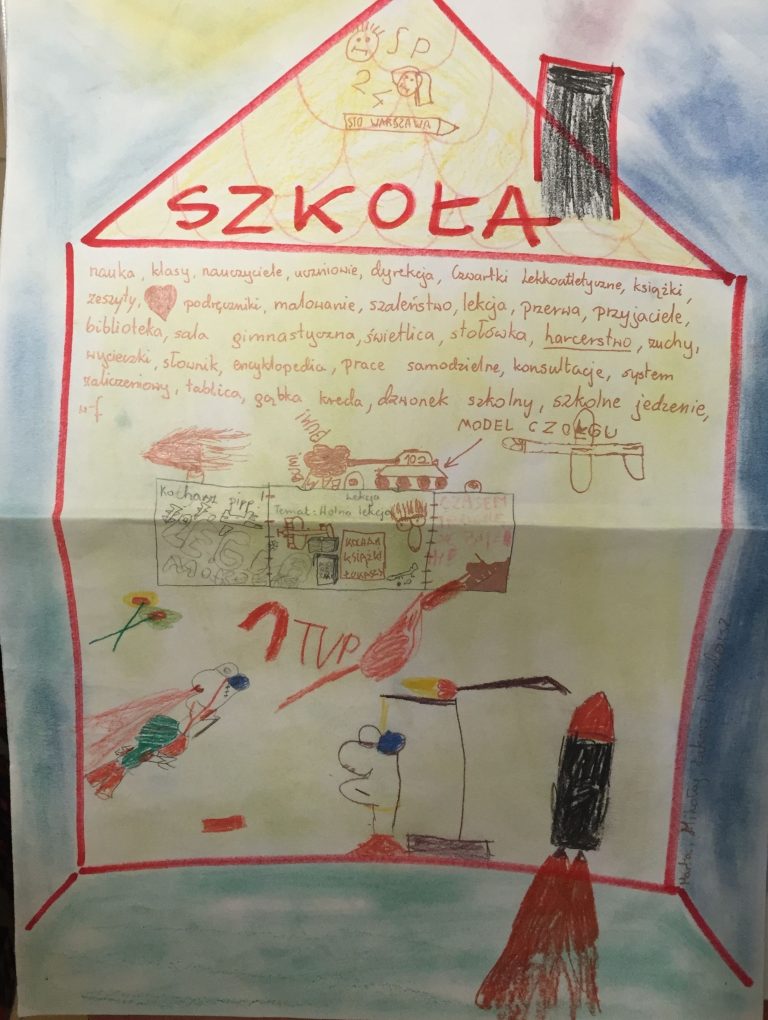 SP
24
STO WARSZAWA
SZKOŁA
nauka, klasy, nauczyciele, uczniowie, dyrekcja, Czwartki Lekkoatletyczne, książki,
zeszyty, podręczniki, malowanie, szaleństwo, lekcja, przerwa, przyjaciele,
biblioteka, sala gimnastyczna, świetlica, stołówka, harcerstwo, zuchy,
wycieczki, słownik, encyklopedia, prace samodzielne, konsultacje, system
zaliczeniowy, tablica, gąbka kreda, dzwonek szkolny, szkolne jedzenie,
w-f
MODEL CZOŁGU
BUM!
BAM!
102
Kocham pippi
Lekcja
Temat: Wolna lekcja
KOCHAM
KSIĄŻKI
ŁUKASZ
CZASEM
1 TVP
Marta, Mikołaj, Łukasz